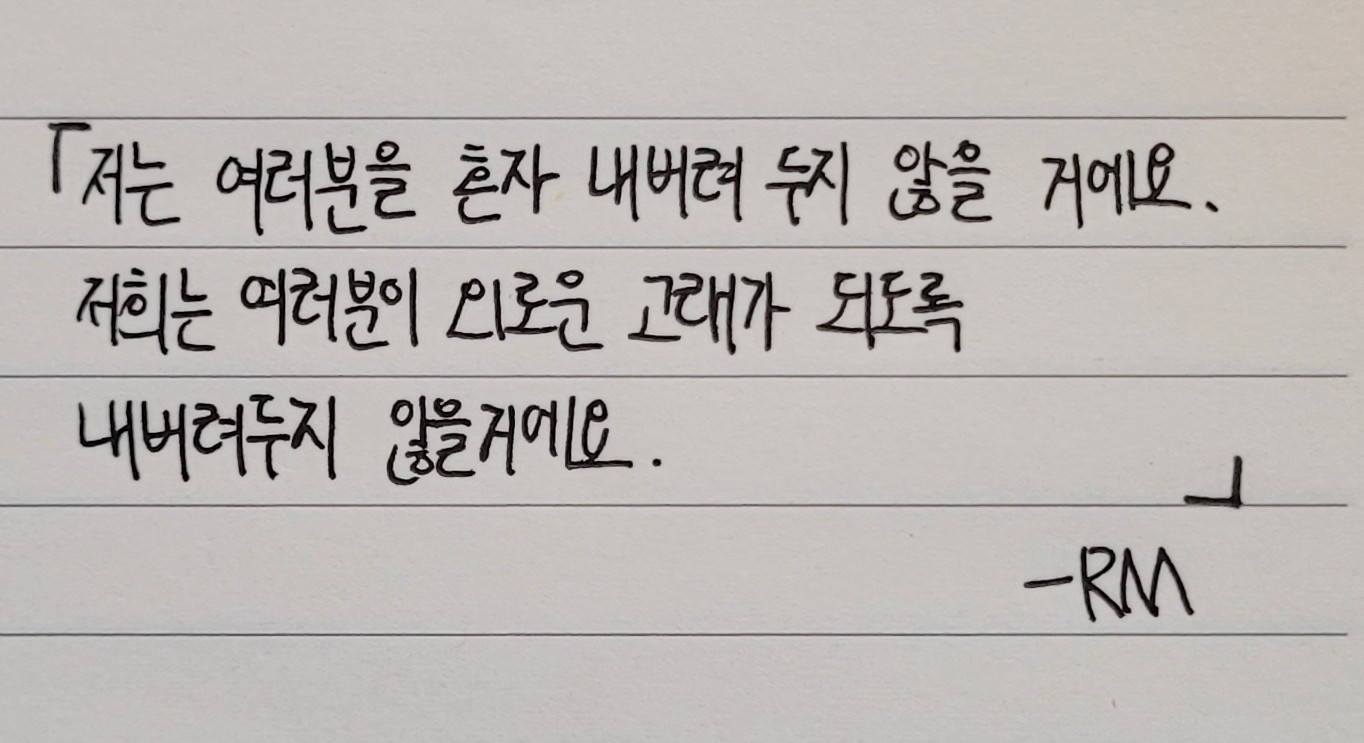 「저는 여러분을 혼자 내버려 두지 않을 거에요.
저희는 여러분이 외로운 고래가 되도록
내버려두지 않을거에요.
」
-RM